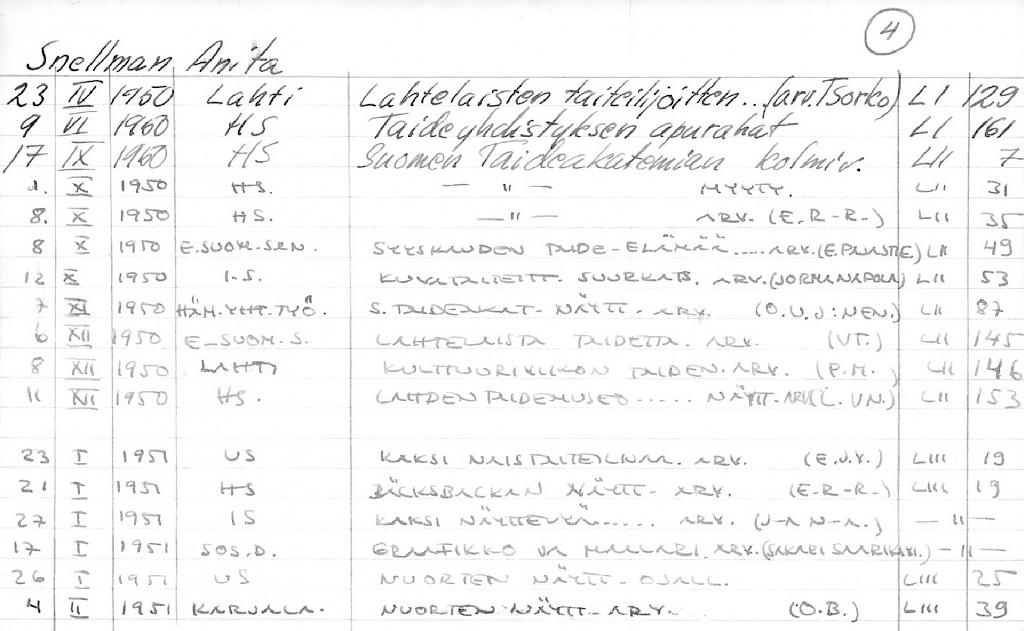 4
Snellman Anita
23 IV 1950 Lahti Lahtelaisten taiteilijoitten... (arv. Tsorko) LI 129
9 VI 1960 HS Taideyhdistyksen apurahat LI 161
17 IX 1960 HS Suomen Taideakatemian kolmiv. LII 7
1. X 1950 HS. — " — MYYTY. LII 31
8. X 1950 HS. — " — ARV. (E.R-R.) LII 35
8 X 1950 E.SUOM.SAN. SYYSKAUDEN TAIDE-ELÄMÄÄ..... ARV. LII 49
12 X 1950 I-S. ARV. (JORMA NAPOLA) LII 53
7 XI 1950 HÄM.YHT.TYÖ. S. TAIDEAKAT. NÄYTT. ARV. (O.U.J:NEN.) LII 87
6 XII 1950 E-SUOM.S. LAHTELAISTA TAIDETTA. ARV. (VT.) LII 145
8 XII 1950 LAHTI KULTTUURIVIIKON TAIDEN. ARV. (P.M.) LII 146
11 XII 1950 HS. LAHDEN TAIDEMUSEO..... NÄYTT. ARV. (L. VN.) LII 153
23 I 1951 US KAKSI NAISTAITEILIJAA. ARV. (E.J.V.) LIII 19
21 I 1951 HS BÄCKSBACKAN NÄYTT. ARV. (E-R-R.) LIII 19
27 I 1951 IS KAKSI NÄYTTELYÄ..... ARV. (J-A N-A.) — " —
17 I 1951 SOS.D. GRAAFIKKO JA MAALARI. ARV. — " —
26 I 1951 US NUORTEN NÄYTT. OSALL. LIII 25
4 II 1951 KARJALA. NUORTEN NÄYTT. ARV. (O.B.) LIII 39